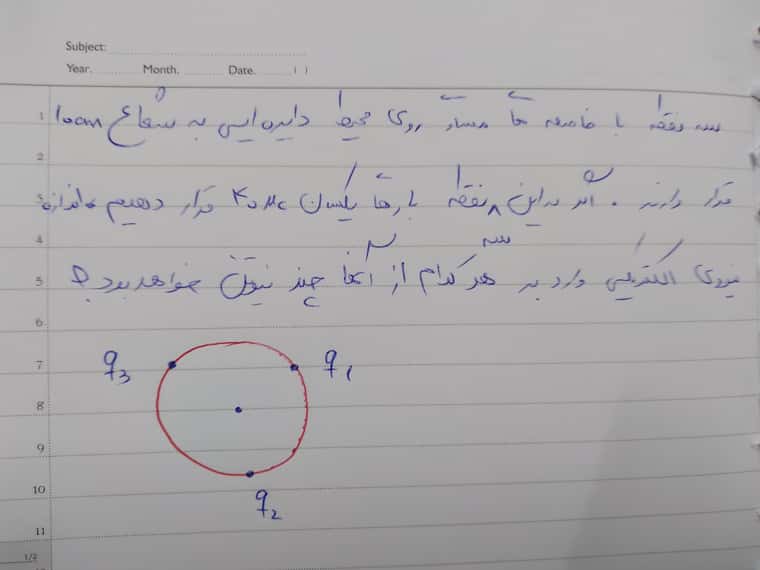 Subject:
Year. Month. Date. ( )
1 سه نقطه با فاصله ها مساوی روی محیط دایره ایی به شعاع 10cm
2
3 قرار دارند . اگر در این سه نقطه بارها یکسان ۴۰μc قرار دهیم اندازه
4
5 نیروی الکتریکی وارد به هر کدام از آنها چند نیوتن خواهد بود؟
6
7 q3 q1
8
9
10 q2
11
1/2